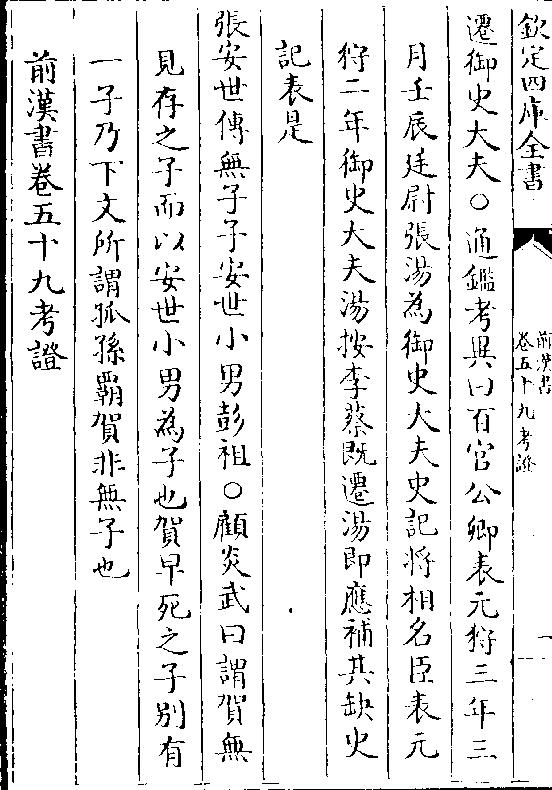 欽定四庫全書
前漢書
卷五十九考證
遷御史大夫○通鑑考異曰百官公卿表元狩三年三
月壬辰廷尉張湯為御史大夫史記將相名臣表元
狩二年御史大夫湯按李蔡既遷湯即應補其缺史
記表是
張安世傳無子子安世小男彭祖○顧炎武曰謂賀無
見存之子而以安世小男為子也賀早死之子別有
一子乃下文所謂孤孫霸賀非無子也
前漢書卷五十九考證